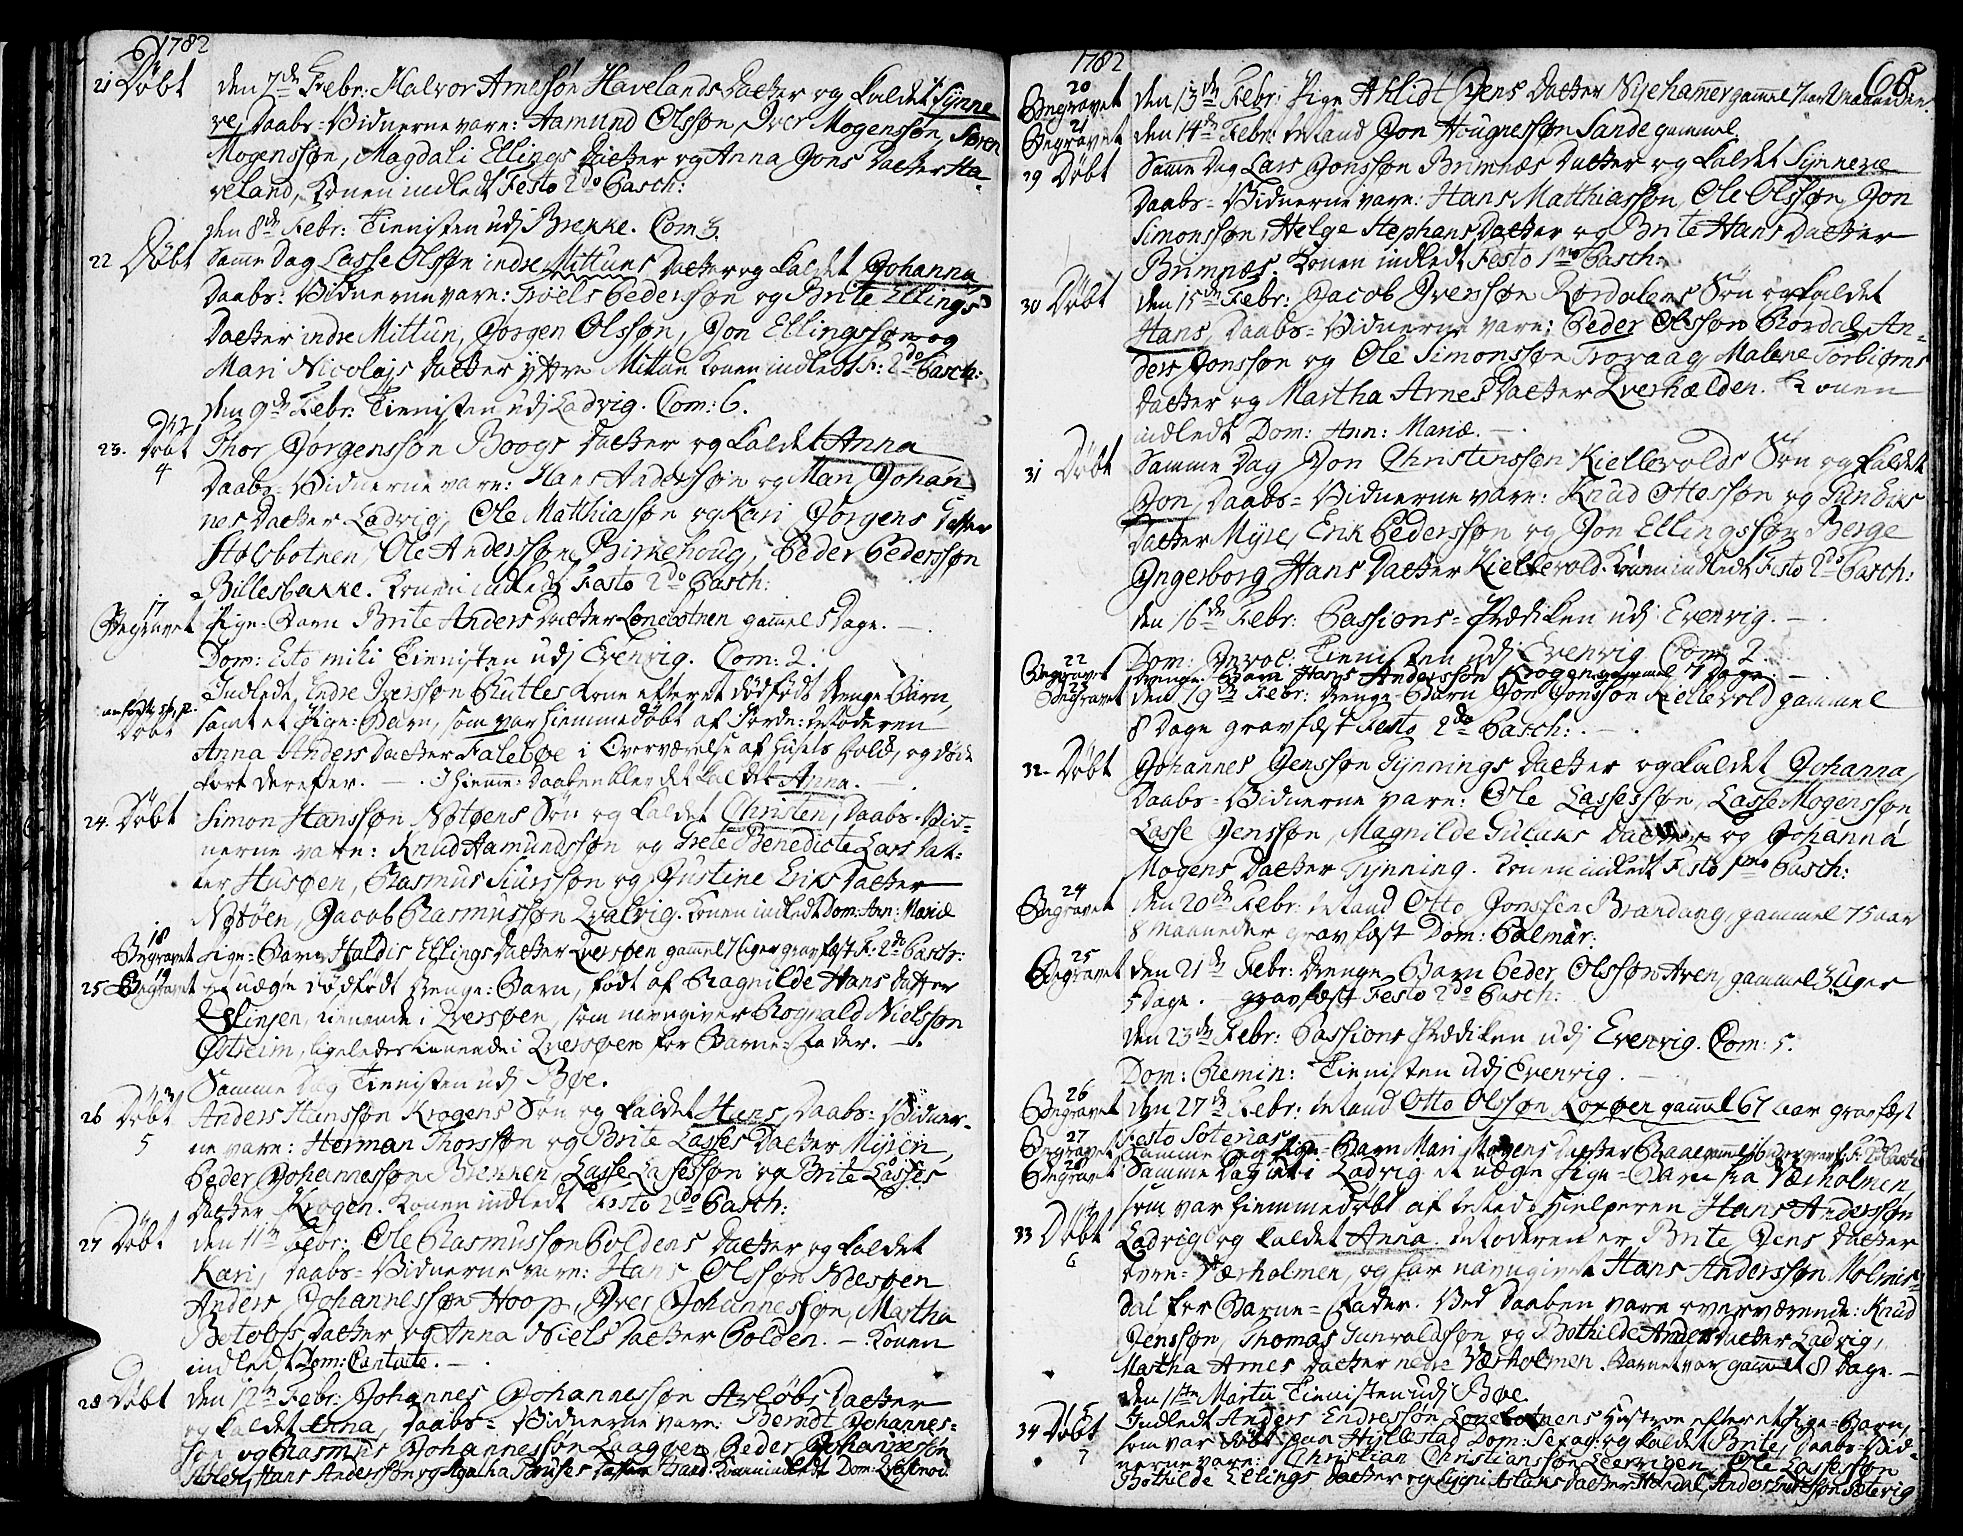 1782
21 Døbt den 7de Febr: Halvor Arnesøn Havelands Datter og kaldet Synne
re, Daabs-Vidnerne vare: Aamund Olssøn, Iver Mogenssøn, Søren
Mogenssøn, Magdali Ellings Datter og Anna Jons Datter Ha-
veland, Konen indledt Festo 2do Pasch:
den 8de Febr: Tienisten udj Brekke. Com 3.
22 Døbt Samme Dag Lasse Olssøn indre Mittuns Datter og kaldet Johanna,
Daabs-Vidnerne vare: Troels Pederssøn og Brite Ellings
Datter indre Mittun, Jørgen Olssøn, Jon Ellingssøn og
Mari Nicolajs Datter ÿttre Mittun Konen indledt F: 2do Pasch:
den 9de Febr: Tienisten udj Ladvig. Com: 6.
23. Døbt Thor Jørgenssøn Boogs Datter og kaldet Anna
4 Daabs-Vidnerne vare: Hans Anderssøn og Mari Johan
nes Datter Ladvig, Ole Matthiassøn og Kari Jørgens Datter
Stølsbotnen, Ole Anderssøn Birkehoug, Peder Pederssøn
Billesbakke. Konen indledt Festo 2do Pasch:
17
Begravet Pige-Barn Brite Anders Datter Lonebotnen gamel 5 Dage.
Dom: Esto mihi Tienisten udj Evenvig. Com: 2.
Indledt, Endre Iverssøn Rutles Kone efter et dødfødt Drenge Barn,
Døbt samt et Pige-Barn, som var hiemmedøbt af Jorde-
Anna Anders Datter Falebøe i Overværelse af Husets Folk, og døde
kort derefter. I hiemme-Daaben blev det kaldet Anna.
24. Døbt Simon Hanssøn Notøens Søn og kaldet Christen, Daabs-Vid-
nerne vare: Knud Aamundssøn og Grete Benedicte Lars Dat-
ter Husøen, Rasmus Siurssøn og Justine Eriks Datter
Notøen, Jacob Rasmussøn Qvalvig. Konen indledt Dom: Ann: Mariæ
18
Begravet Pige-Barn Haldis Ellings Datter Qversøen gamel 7 Uger gravfæst F: 2do Pasch:
19
25 Begravet Et uægte dødfødt Drenge-Barn, født af Ragnilde Hans Datter
tienende i Qversøen, som navngiver Rognald Nielssøn
Østreim, ligeledes tienende i Qversøen for Barne-Fader.
Samme Dag Tienisten udj Bøe.
26 Døbt Anders Hanssøn Krogens Søn og kaldet Hans, Daabs-Vidner-
5 ne vare: Herman Thorssøn og Brite Lasses Datter Myren,
Peder Johannessøn Brekken, Lasse Lassessøn og Brite Lasses
Datter Krogen. Konen indledt Festo 2do Pasch:
27 Døbt den 11te Febr: Ole Rasmussøn Poldens Datter og kaldet
Kari, Daabs-Vidnerne vare: Hans Olssøn Næsøen
Anders Johannessøn Hoop, Iver Johannessøn, Martha
Botolfs Datter og Anna Niels Datter Polden. Konen
indledt Dom: Cantate.
28 Døbt den 12te Febr: Johannes Johannessøn Datter
og kaldet Anna, Daabs-Vidnerne vare: Berndt Johannes-
søn og Rasmus Johannessøn Laagøen, Peder Johannessøn
Hans Anderssøn og Agatha Datter Konen indledt Dom:
1782
66
20
Begravet den 13de Febr: Pige Ahlidt Jens Datter Nyehammer gammel
21
Begravet den 14de Febr: Jon Hougnessøn Sande gammel
29 Døbt Samme Dag Lars Jonssøn Brimnæs Datter og kaldet Synneve
Daabs-Vidnerne vare: Hans Matthiassøn, Ole Olssøn, Jon
Simonssøn, Helge Stephans Datter og Brite Hans Datter
Brimnæs. Konen indledt Festo 1mo Pasch:
30 Døbt den 15de Febr: Jacob Iverssøn Rørdalens Søn og kaldet
Hans, Daabs-Vidnerne vare: Peder Olssøn Rørdal, An-
ders Jonssøn og Ole Simonssøn Trovaag, Malene Torbiørns
Datter og Martha Arnes Datter Qverhælden. Konen
indledt Dom: Ann: Mariæ.
31 Døbt Samme Dag Jon Christenssøn Kiellevolds Søn og kaldet
Jon, Daabs-Vidnerne vare: Knud Ottessøn og
Datter Myre, Erik Pederssøn og Jon Ellingssøn Berge
Ingerborg Hans Datter Kiellevold. Konen indledt Festo 2do Pasch:
den 16de Febr: Passions-Prædiken udj Evenvig.
Dom: Invoc: Tienisten udj Evenvig Com: 2.
22
Begravet Drenge Barn Hans Anderssøn Krogen gammel 7 Dage.
23
Begravet den 19de Febr: Drenge-Barn Jon Jonssøn Kiellevold gammel
8 Dage gravfæst Festo 2do Pasch:
32. Døbt Johannes Jenssøn Tynnings Datter og kaldet Johanna,
Daabs-Vidnerne vare: Ole Lassessøn, Lasse Mogenssøn
Lasse Jenssøn, Magnilde Datter og Johanna
Mogens Datter Tynning. Konen indledt Festo 1mo Pasch:
24
Begravet den 20de Febr: Otto Jonssøn Brandang, gammel 75 aar
8 Maaneder gravfæst Dom: Palmar.
25
Begravet den 21de Febr: Drenge Barn Peder Olssøn Aven, gammel 3 Uger
5 Dage. gravfæst Festo 2do Pasch:
den 23de Febr: Passions Prædiken udj Evenvig. Com: 5.
Dom: Remin: Tienisten udj Evenvig.
26
Begravet den 27de Febr: Otto Olssøn gamel 67 aar gravfæst
Festo
27
Begravet Samme Dag Pige-Barn Mari Mogens Datter F: 2do Pasch:
28
Begravet Samme Dag i Ladvig et uægte Pige-Barn fra Værholmen,
som var hiemmedøbt af Hans Anderssøn
33 Døbt Ladvig og kaldet Anna. Moderen er Brite Jens Datter
6 Værholmen, og har navngivet Hans Anderssøn Molmis-
dal for Barne-Fader. Ved Daaben vare overværende: Knud
Jenssøn, Thomas Gunvaldssøn og Bothilde Anders Datter Ladvig,
Martha Arnes Datter nedre Værholmen. Barnet var gammelt 8 Dage.
den 1ste Martii Tienisten udj Bøe
34 Døbt Indledt Anders Endressøn Lonebotnens Hustroe efter et Pige-Barn,
som var døbt paa Hyllestad Dom: Sexag: og kaldet Brite, Daabs-Vid-
7 nerne vare: Christian Christianssøn Leervigen, Ole Lassessøn
Bothilde Ellings Datter og Datter Anders